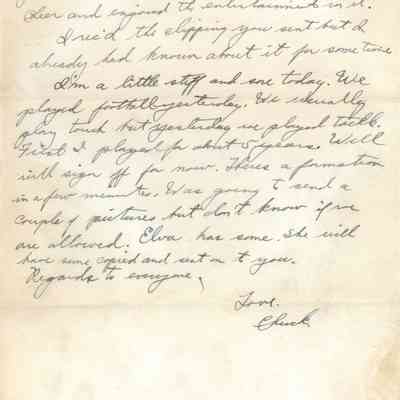 beer and enjoyed the entertainment in it.
I rec'd the clipping you sent but I
already had known about it for sometime
I'm a little stiff and sore today. We
played football yesterday. We usually
play touch but yesterday we played tackle.
First I played for about 5 years. Well
will sign off for now. Theres a formation
in a few minutes. Was going to send a
couple of pictures but don't know if we
are allowed. Elva has some. She will
have some copied and sent on to you.
Regards to everyone,
Love.
Chuck